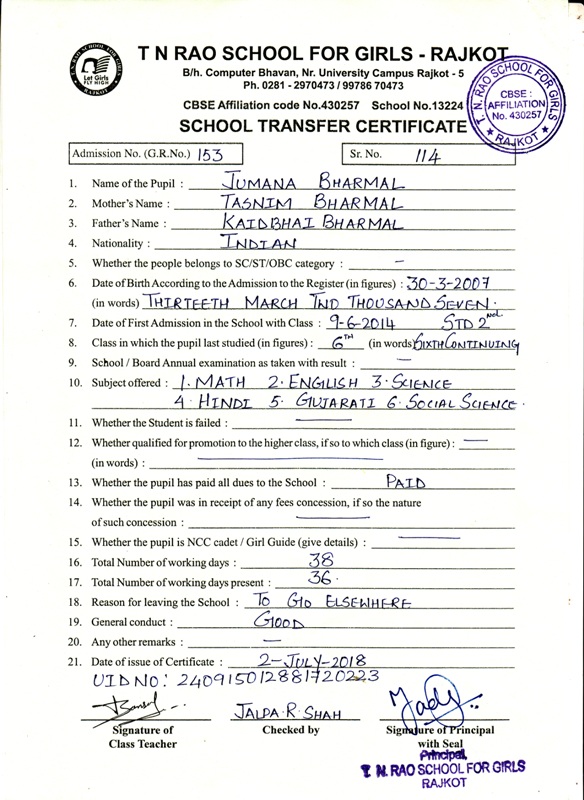 T. N. RAO SCHOOL FOR GIRLS
Let Girls
FLY HIGH
RAJKOT
T N RAO SCHOOL FOR GIRLS - RAJKOT
B/h. Computer Bhavan, Nr. University Campus Rajkot - 5
Ph. 0281 - 2970473 / 99786 70473
CBSE Affiliation code No.430257 School No.13224
SCHOOL TRANSFER CERTIFICATE
T. N. RAO SCHOOL FOR GIRLS
CBSE :
AFFILIATION
No. 430257
★ RAJKOT ★
Admission No. (G.R.No.) 153 Sr. No. 114
1. Name of the Pupil : JUMANA BHARMAL
2. Mother's Name : TASNIM BHARMAL
3. Father's Name : KAIDBHAI BHARMAL
4. Nationality : INDIAN
5. Whether the people belongs to SC/ST/OBC category : —
6. Date of Birth According to the Admission to the Register (in figures) : 30-3-2007
(in words) THIRTEETH MARCH TND THOUSAND SEVEN.
7. Date of First Admission in the School with Class : 9-6-2014 STD 2nd
8. Class in which the pupil last studied (in figures) : 6TH (in words) SIXTH CONTINUING
9. School / Board Annual examination as taken with result : —
10. Subject offered : 1. MATH 2. ENGLISH 3. SCIENCE
4. HINDI 5. GUJARATI 6. SOCIAL SCIENCE.
11. Whether the Student is failed : —
12. Whether qualified for promotion to the higher class, if so to which class (in figure) : —
(in words) : —
13. Whether the pupil has paid all dues to the School : PAID
14. Whether the pupil was in receipt of any fees concession, if so the nature
of such concession : —
15. Whether the pupil is NCC cadet / Girl Guide (give details) : —
16. Total Number of working days : 38
17. Total Number of working days present : 36.
18. Reason for leaving the School : TO GO ELSEWHERE
19. General conduct : GOOD
20. Any other remarks : —
21. Date of issue of Certificate : 2-JULY-2018
UID NO: 240915012881720223
JALPA.R.SHAH
Signature of Checked by Signature of Principal
Class Teacher with Seal
Principal,
T. N. RAO SCHOOL FOR GIRLS
RAJKOT